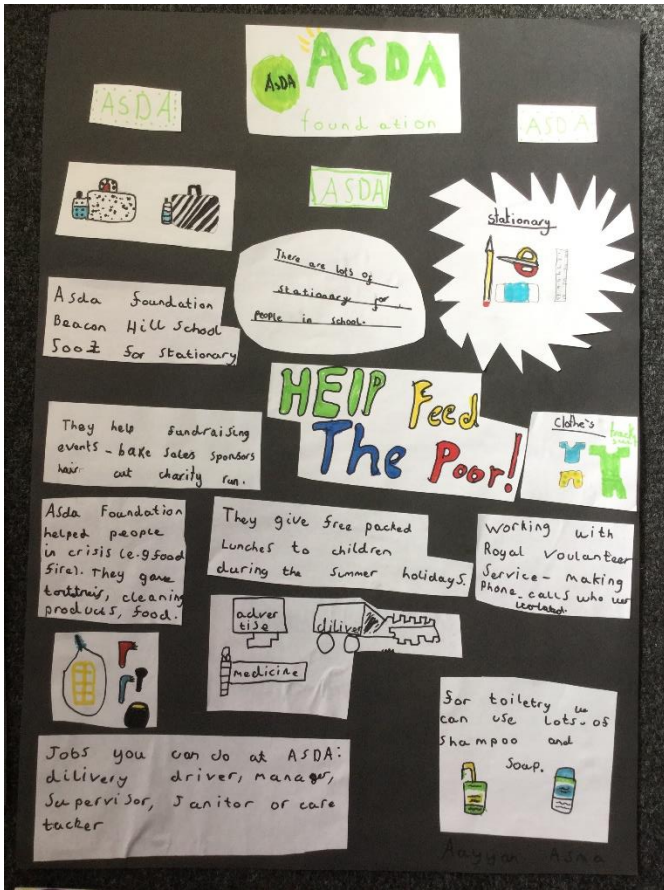 ASDA
ASDA
foundation
ASDA
ASDA
ASDA
stationary
There are lots of
stationary for
people in school.
Asda foundation
Beacon Hill School
500£ for stationary
HElP Feed
The Poor!
clothe's
They help fundraising
events - bake sales sponsors
hair cut charity run.
Asda Foundation
helped people
in crisis (e.g food
fire). They gave
cleaning
products, food.
They give free packed
Lunches to children
during the summer holidays.
Working with
Royal Voulanteer
Service - making
Phone calls who
isolated.
adver
tise
diliver
medicine
for toiletry we
can use lots of
shampoo and
Soup.
Jobs you can do at ASDA:
dilivery driver, manager,
Supervisor, Janitor or care
tacker
Aayyan Asma